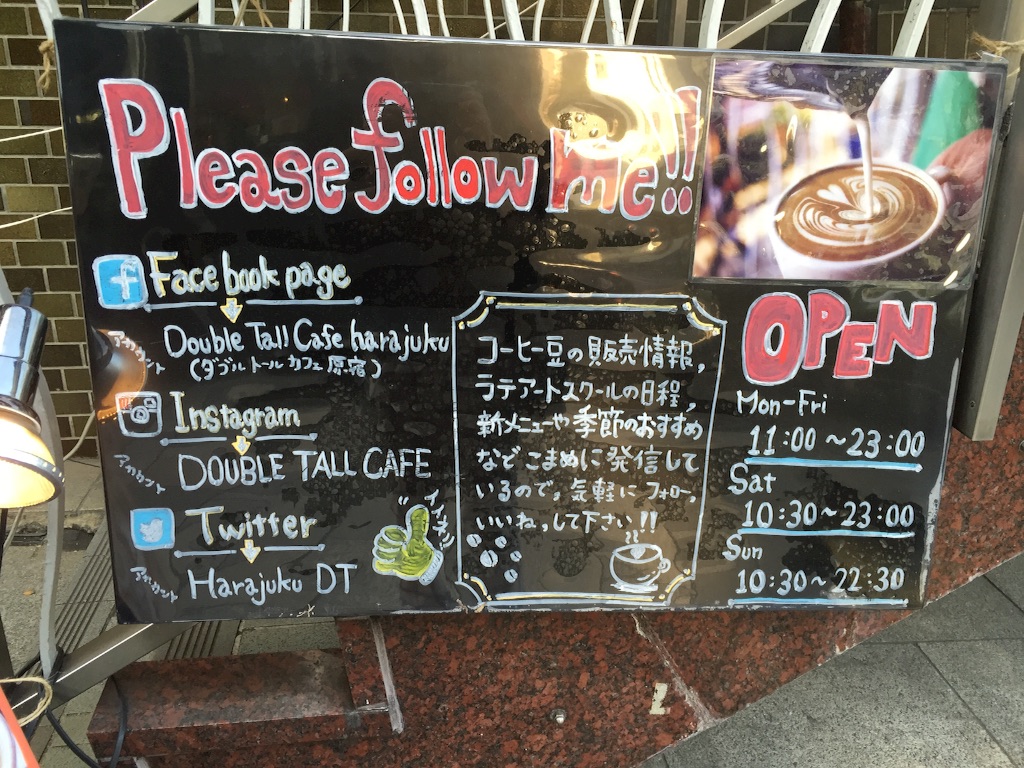 Please follow me!!
Facebook page
アカウント
Double Tall Cafe harajuku
(ダブルトールカフェ原宿)
Instagram
アカウント
DOUBLE TALL CAFE
Twitter
アカウント
Harajuku DT
コーヒー豆の販売情報,
ラテアートスクールの日程,
新メニューや季節のおすすめ
などこまめに発信して
いるので,気軽にフォロー,
いいねっして下さい!!
OPEN
Mon-Fri
11:00~23:00
Sat
10:30~23:00
Sun
10:30~22:30